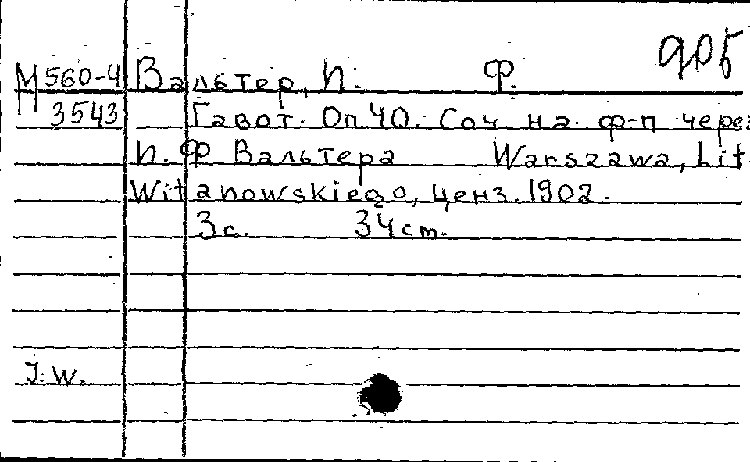 905
М 560-4 Вальтер, И. Ф.
3543 Гавот. Оп. 40. Соч на ф-п через
И. Ф Вальтера Warszawa, Lit
Witanowskiego, ценз. 1902.
3 с. 34 cm.
J. W.